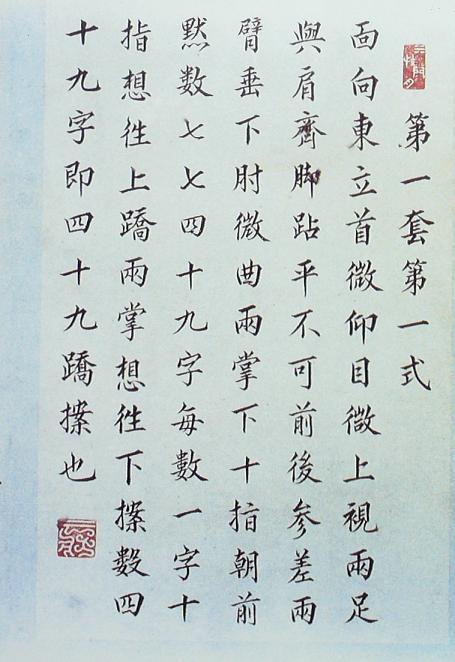 第一套第一式
面向東立首微仰目微上視兩足
與肩齊脚跕平不可前後參差兩
臂垂下肘微曲兩掌下十指朝前
默數七七四十九字每數一字十
指想徃上蹻兩掌想徃下㩇數四
十九字即四十九蹻㩇也